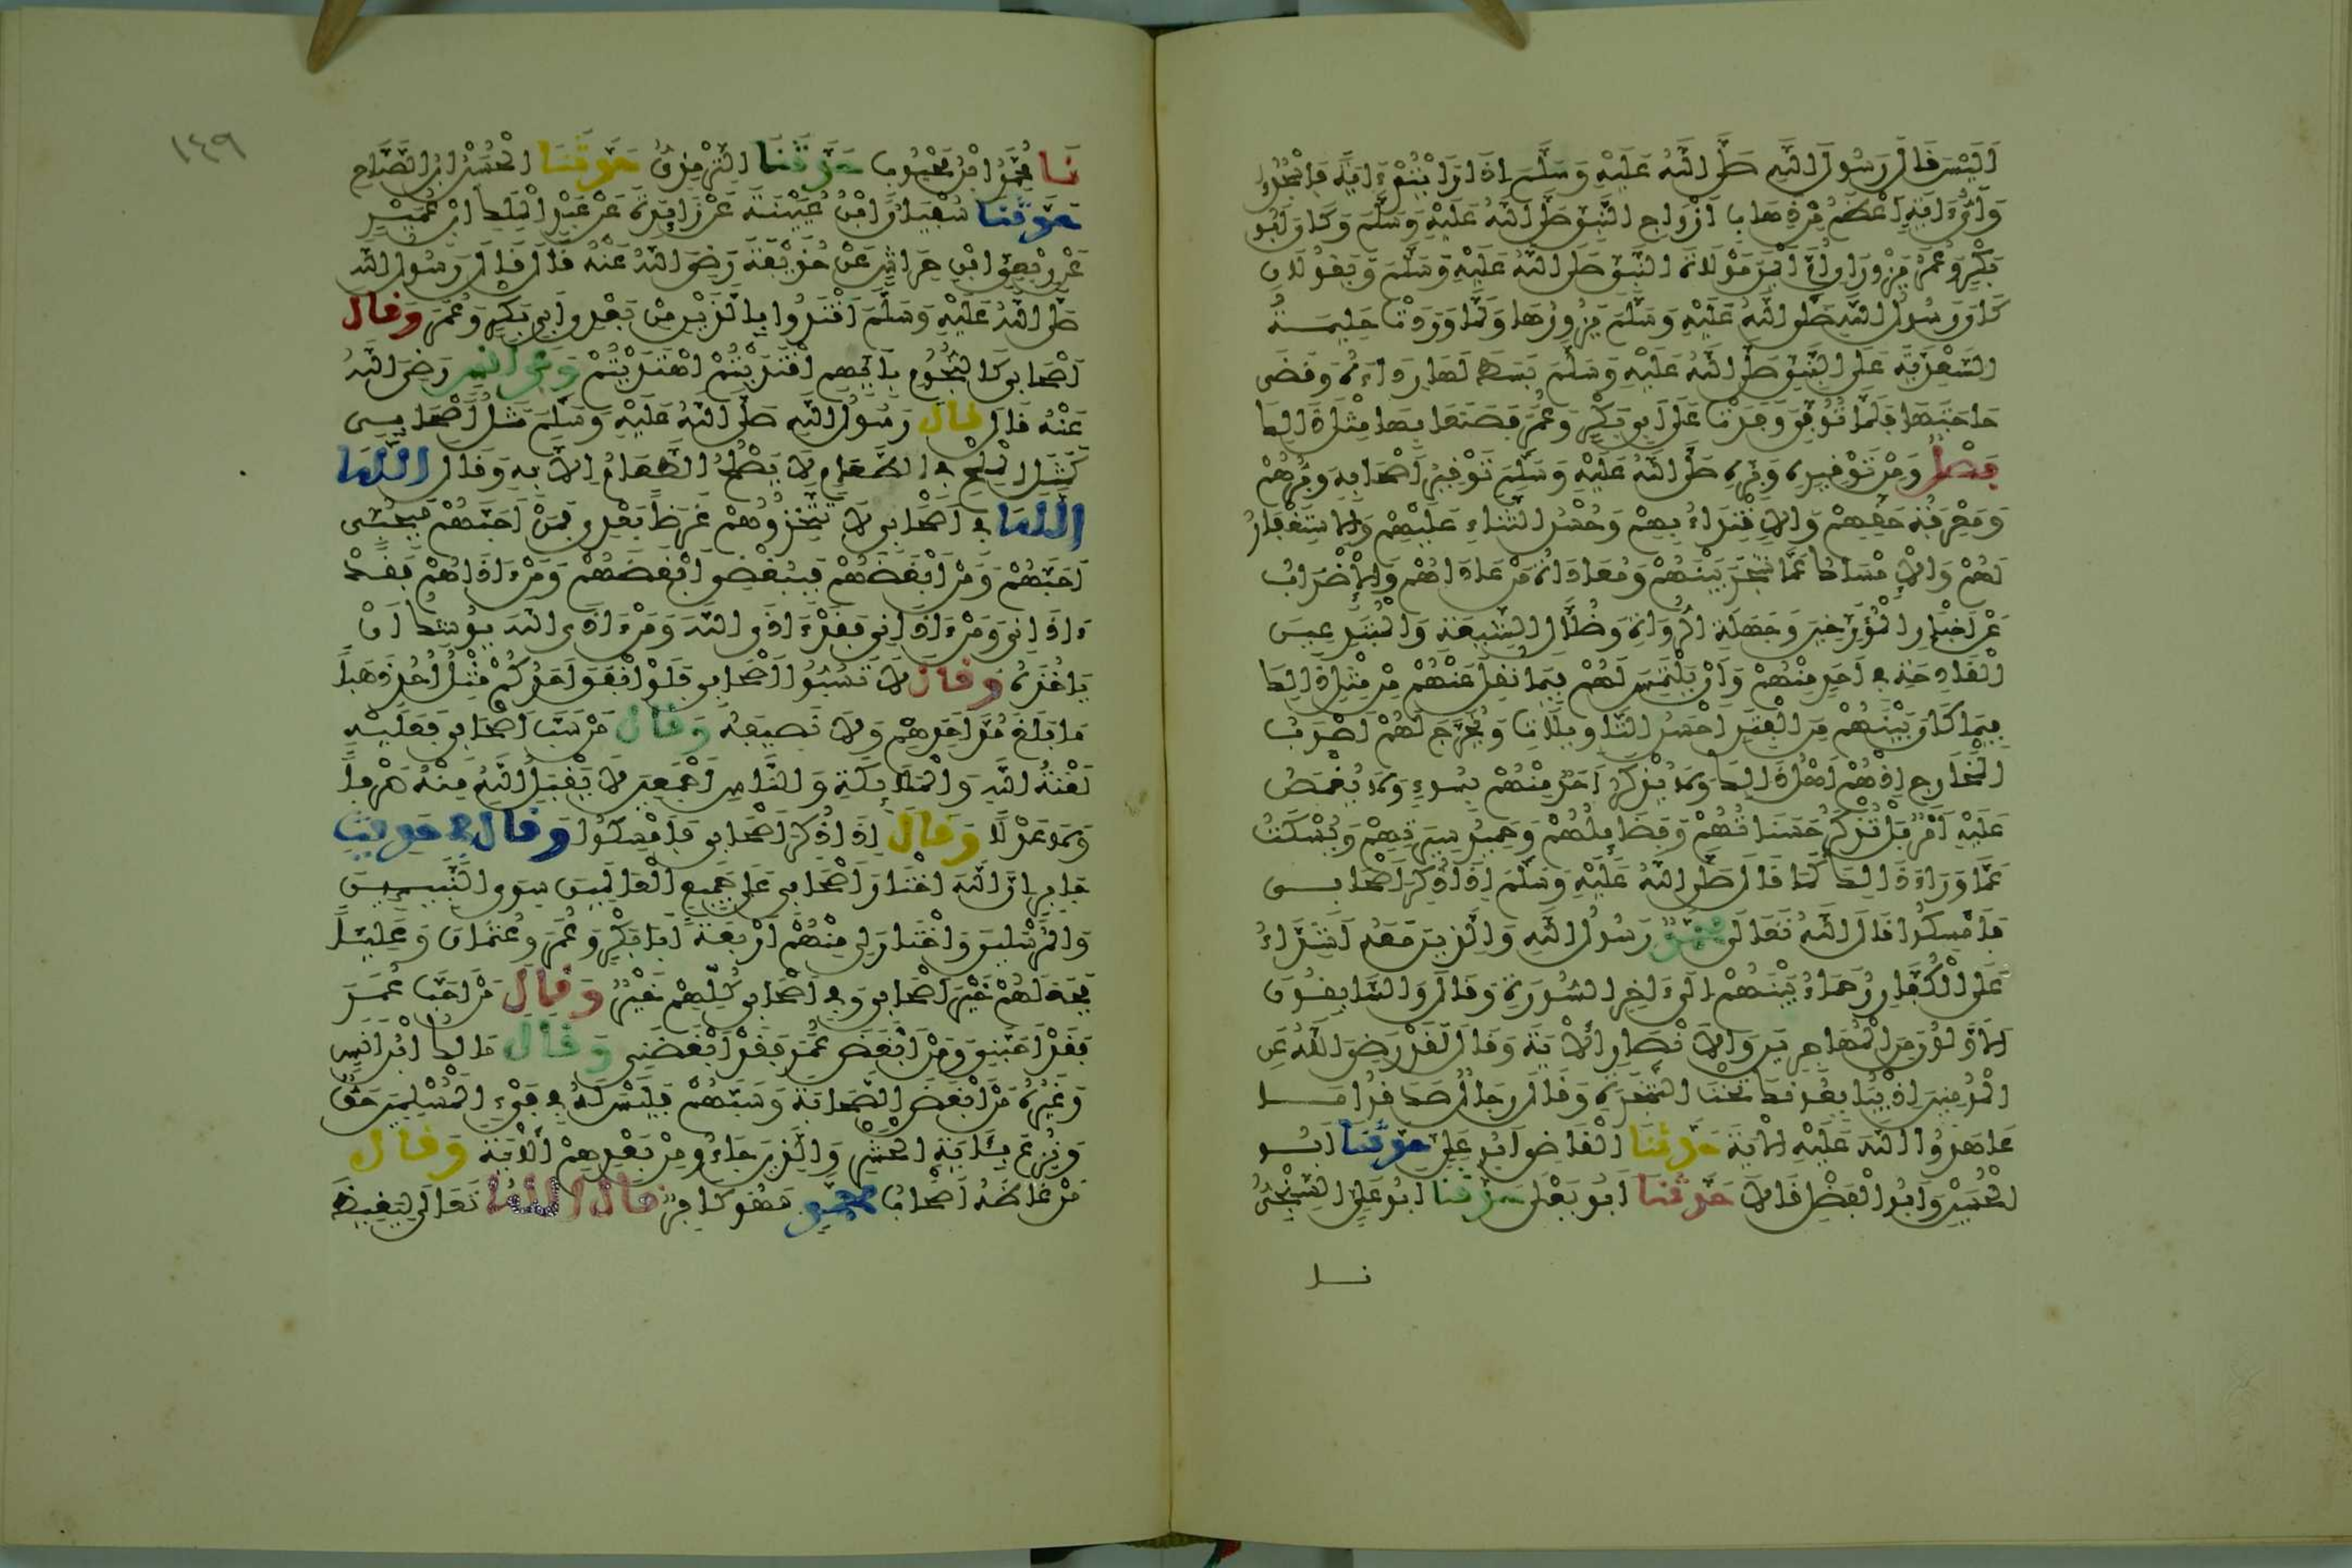 أَلَيْسَ قَالَ رَسُولُ اللَّهِ صَلَّى اللَّهُ عَلَيْهِ وَسَلَّمَ إِذَا رَأَيْتُمْ ءَايَةً فَاسْجُدُوا
وَأَيُّ ءَايَةٍ أَعْظَمُ مِنْ ذِهَابِ أَزْوَاجِ النَّبِيِّ صَلَّى اللَّهُ عَلَيْهِ وَسَلَّمَ وَكَانَ أَبُو
بَكْرٍ وَعُمَرُ يَزُورَانِ أُمَّ أَيْمَنَ مَوْلَاةَ النَّبِيِّ صَلَّى اللَّهُ عَلَيْهِ وَسَلَّمَ وَيَقُولَانِ
كَانَ رَسُولُ اللَّهِ صَلَّى اللَّهُ عَلَيْهِ وَسَلَّمَ يَزُورُهَا وَلَمَّا وَرَدَتْ حَلِيمَةُ
السَّعْدِيَّةُ عَلَى النَّبِيِّ صَلَّى اللَّهُ عَلَيْهِ وَسَلَّمَ بَسَطَ لَهَا رِدَاءَهُ وَقَضَى
حَاجَتَهَا فَلَمَّا تُوُفِّيَ وَفَدَتْ عَلَى أَبِي بَكْرٍ وَعُمَرَ فَصَنَعَا بِهَا مِثْلَ ذَلِكَ
فَصْلٌ وَمِنْ تَوْقِيرِهِ وَبِرِّهِ صَلَّى اللَّهُ عَلَيْهِ وَسَلَّمَ تَوْقِيرُ أَصْحَابِهِ وَبِرُّهُمْ
وَمَعْرِفَةُ حَقِّهِمْ وَالِاقْتِدَاءُ بِهِمْ وَحُسْنُ الثَّنَاءِ عَلَيْهِمْ وَالِاسْتِغْفَارُ
لَهُمْ وَالْإِمْسَاكُ عَمَّا شَجَرَ بَيْنَهُمْ وَمُعَادَاةُ مَنْ عَادَاهُمْ وَالْإِضْرَابُ
عَنْ أَخْبَارِ الْمُؤَرِّخِينَ وَجَهَلَةِ الرُّوَاةِ وَضُلَّالِ الشِّيعَةِ وَالْمُبْتَدِعِينَ
الْقَادِحَةِ فِي أَحَدٍ مِنْهُمْ وَأَنْ يُلْتَمَسَ لَهُمْ فِيمَا نُقِلَ عَنْهُمْ مِنْ مِثْلِ ذَلِكَ
فِيمَا كَانَ بَيْنَهُمْ مِنَ الْفِتَنِ أَحْسَنُ التَّأْوِيلَاتِ وَيُخَرَّجَ لَهُمْ أَصْوَبُ
الْمَخَارِجِ إِذْ هُمْ أَهْلُ ذَلِكَ وَلَا يُذْكَرُ أَحَدٌ مِنْهُمْ بِسُوءٍ وَلَا يُغْمَصُ
عَلَيْهِ أَمْرٌ بَلْ تُذْكَرُ حَسَنَاتُهُمْ وَفَضَائِلُهُمْ وَحَمِيدُ سِيرَتِهِمْ وَيُسْكَتُ
عَمَّا وَرَاءَ ذَلِكَ كَمَا قَالَ صَلَّى اللَّهُ عَلَيْهِ وَسَلَّمَ إِذَا ذُكِرَ أَصْحَابِي
فَأَمْسِكُوا قَالَ اللَّهُ تَعَالَى مُحَمَّدٌ رَسُولُ اللَّهِ وَالَّذِينَ مَعَهُ أَشِدَّاءُ
عَلَى الْكُفَّارِ رُحَمَاءُ بَيْنَهُمْ إِلَى ءَاخِرِ السُّورَةِ وَقَالَ وَالسَّابِقُونَ
الْأَوَّلُونَ مِنَ الْمُهَاجِرِينَ وَالْأَنْصَارِ الْآيَةَ وَقَالَ لَقَدْ رَضِيَ اللَّهُ عَنِ
الْمُؤْمِنِينَ إِذْ يُبَايِعُونَكَ تَحْتَ الشَّجَرَةِ وَقَالَ رِجَالٌ صَدَقُوا مَا
عَاهَدُوا اللَّهَ عَلَيْهِ الْآيَةَ حَدَّثَنَا الْقَاضِي أَبُو عَلِيٍّ حَدَّثَنَا أَبُو
الْحُسَيْنِ وَأَبُو الْفَضْلِ قَالَا حَدَّثَنَا أَبُو يَعْلَى حَدَّثَنَا أَبُو عَلِيٍّ السِّنْجِيُّ
نـا
١٤٩
نَا مُحَمَّدُ ابْنُ مَحْبُوبٍ حَدَّثَنَا التِّرْمِذِيُّ حَدَّثَنَا الْحَسَنُ ابْنُ الصَّبَّاحِ
حَدَّثَنَا سُفْيَانُ ابْنُ عُيَيْنَةَ عَنْ زَائِدَةَ عَنْ عَبْدِ الْمَلِكِ ابْنِ عُمَيْرٍ
عَنْ رِبْعِيِّ ابْنِ حِرَاشٍ عَنْ حُذَيْفَةَ رَضِيَ اللَّهُ عَنْهُ قَالَ قَالَ رَسُولُ اللَّهِ
صَلَّى اللَّهُ عَلَيْهِ وَسَلَّمَ اقْتَدُوا بِالَّذَيْنِ مِنْ بَعْدِي أَبِي بَكْرٍ وَعُمَرَ وَقَالَ
أَصْحَابِي كَالنُّجُومِ بِأَيِّهِمُ اقْتَدَيْتُمُ اهْتَدَيْتُمْ وَعَنْ أَنَسٍ رَضِيَ اللَّهُ
عَنْهُ قَالَ قَالَ رَسُولُ اللَّهِ صَلَّى اللَّهُ عَلَيْهِ وَسَلَّمَ مَثَلُ أَصْحَابِي
كَمَثَلِ الْمِلْحِ فِي الطَّعَامِ لَا يَصْلُحُ الطَّعَامُ إِلَّا بِهِ وَقَالَ اللَّهَ
اللَّهَ فِي أَصْحَابِي لَا تَتَّخِذُوهُمْ غَرَضًا بَعْدِي فَمَنْ أَحَبَّهُمْ فَبِحُبِّي
أَحَبَّهُمْ وَمَنْ أَبْغَضَهُمْ فَبِبُغْضِي أَبْغَضَهُمْ وَمَنْ ءَاذَاهُمْ فَقَدْ
ءَاذَانِي وَمَنْ ءَاذَانِي فَقَدْ ءَاذَى اللَّهَ وَمَنْ ءَاذَى اللَّهَ يُوشِكُ أَنْ
يَأْخُذَهُ وَقَالَ لَا تَسُبُّوا أَصْحَابِي فَلَوْ أَنْفَقَ أَحَدُكُمْ مِثْلَ أُحُدٍ ذَهَبًا
مَا بَلَغَ مُدَّ أَحَدِهِمْ وَلَا نَصِيفَهُ وَقَالَ مَنْ سَبَّ أَصْحَابِي فَعَلَيْهِ
لَعْنَةُ اللَّهِ وَالْمَلَائِكَةِ وَالنَّاسِ أَجْمَعِينَ لَا يَقْبَلُ اللَّهُ مِنْهُ صَرْفًا
وَلَا عَدْلًا وَقَالَ إِذَا ذُكِرَ أَصْحَابِي فَأَمْسِكُوا وَقَالَ فِي حَدِيثِ
جَابِرٍ إِنَّ اللَّهَ اخْتَارَ أَصْحَابِي عَلَى جَمِيعِ الْعَالَمِينَ سِوَى النَّبِيئِينَ
وَالْمُرْسَلِينَ وَاخْتَارَ لِي مِنْهُمْ أَرْبَعَةً أَبَا بَكْرٍ وَعُمَرَ وَعُثْمَانَ وَعَلِيًّا
فَجَعَلَهُمْ خَيْرَ أَصْحَابِي وَفِي أَصْحَابِي كُلِّهِمْ خَيْرٌ وَقَالَ مَنْ أَحَبَّ عُمَرَ
فَقَدْ أَحَبَّنِي وَمَنْ أَبْغَضَ عُمَرَ فَقَدْ أَبْغَضَنِي وَقَالَ مَالِكُ ابْنُ أَنَسٍ
وَغَيْرُهُ مَنْ أَبْغَضَ الصَّحَابَةَ وَسَبَّهُمْ فَلَيْسَ لَهُ فِي فَيْءِ الْمُسْلِمِينَ حَقٌّ
وَنُزِعَ بِآيَةِ الْحَشْرِ وَالَّذِينَ جَاءُو مِنْ بَعْدِهِمْ الْآيَةَ وَقَالَ
مَنْ غَاظَهُ أَصْحَابُ مُحَمَّدٍ فَهُوَ كَافِرٌ قَالَ اللَّهُ تَعَالَى لِيَغِيظَ